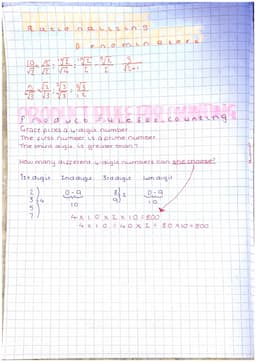 Rationalising
Denominators
PRODUCT RULE FOR COUNTING
Product rule for counting
Grace picks a 4-digit number.
The first number is a prime number
The third digit is greater than 7
How many different 4-digit numbers can she choose?
1st digit 2nd digit 3rd digit 4th digit
2 0-9 8 } 2 0-9
3 } 4 10 9 10
5
7
4 x 10 x 2 x 10 = 800
4 x 10 = 40 x 2 = 80 x 10 = 800